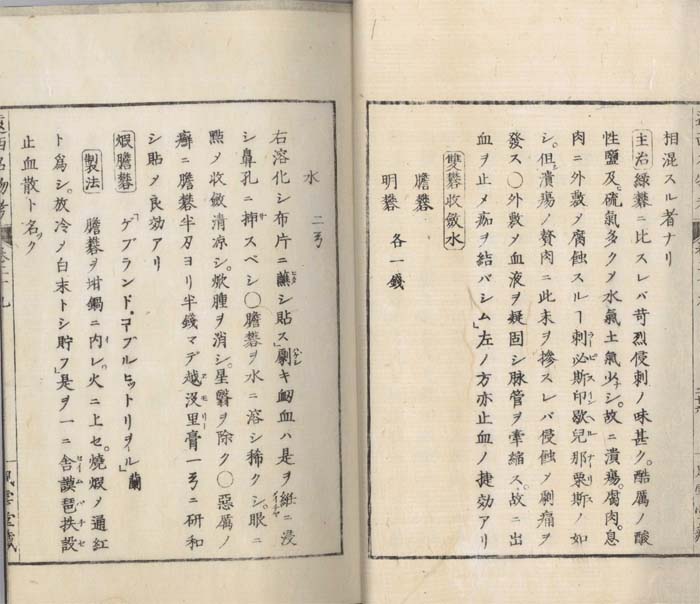 相混スル者ナリ
主治綠礬ニ比スレバ苛烈侵刺ノ味甚ク。酷厲ノ酸
性鹽及硫氣多クメ水氣土氣少シ。故ニ潰瘍。腐肉。息
肉ニ外敷メ腐蝕スルヿ刺必斯印歇兒那栗斯ノ如
シ。但潰瘍ノ贅肉ニ此末ヲ摻スレバ侵蝕メ劇痛ヲ
發ス○外敷メ血液ヲ凝固シ脉管ヲ牽縮ス。故ニ出
血ヲ止メ痂ヲ結バシム」左ノ方亦止血ノ捷効アリ
雙礬收斂水
膽礬
明礬 各一錢
水 二弓
右溶化シ布片ニ蘸シ貼ス」劇キ衂血ハ是ヲ紙ニ浸
シ鼻孔ニ挿スベシ○膽礬ヲ水ニ溶シ稀クシ。眼ニ
㸃メ收斂清凉シ。焮腫ヲ消シ。星翳ヲ除ク○惡厲ノ
癬ニ膽礬半刃ヨリ半錢マデ越沒里膏一弓ニ研和
シ貼メ良効アリ
煆膽礬 「ゲブランド。コプル ヒットリヲイル」蘭
製法 膽礬ヲ坩鍋ニ内レ。火ニ上セ。燒煆メ通紅
ト爲シ。放冷メ白末トシ貯フ」是ヲ一ニ舎謨琶扶設
止血散ト名ック
遠西名物考